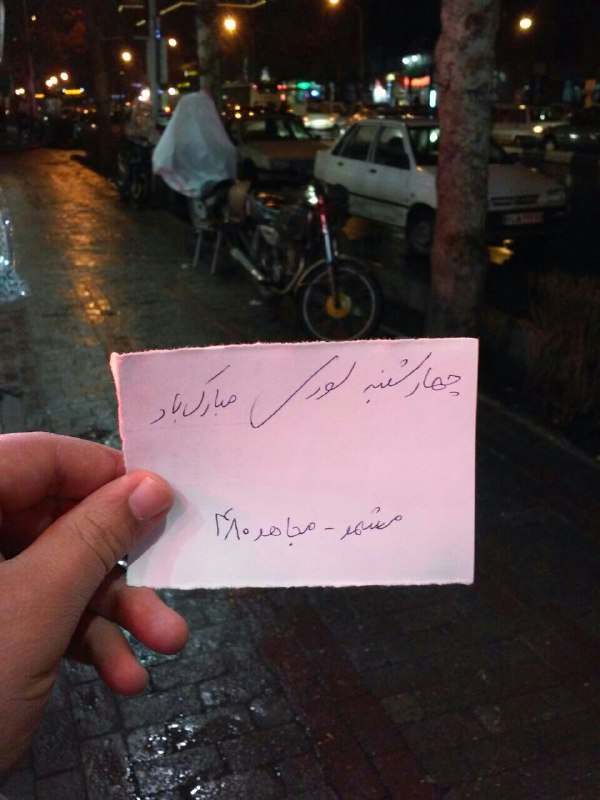 چهارشنبه سوری مبارک باد
مشهد - مجاهد ۴۸۰